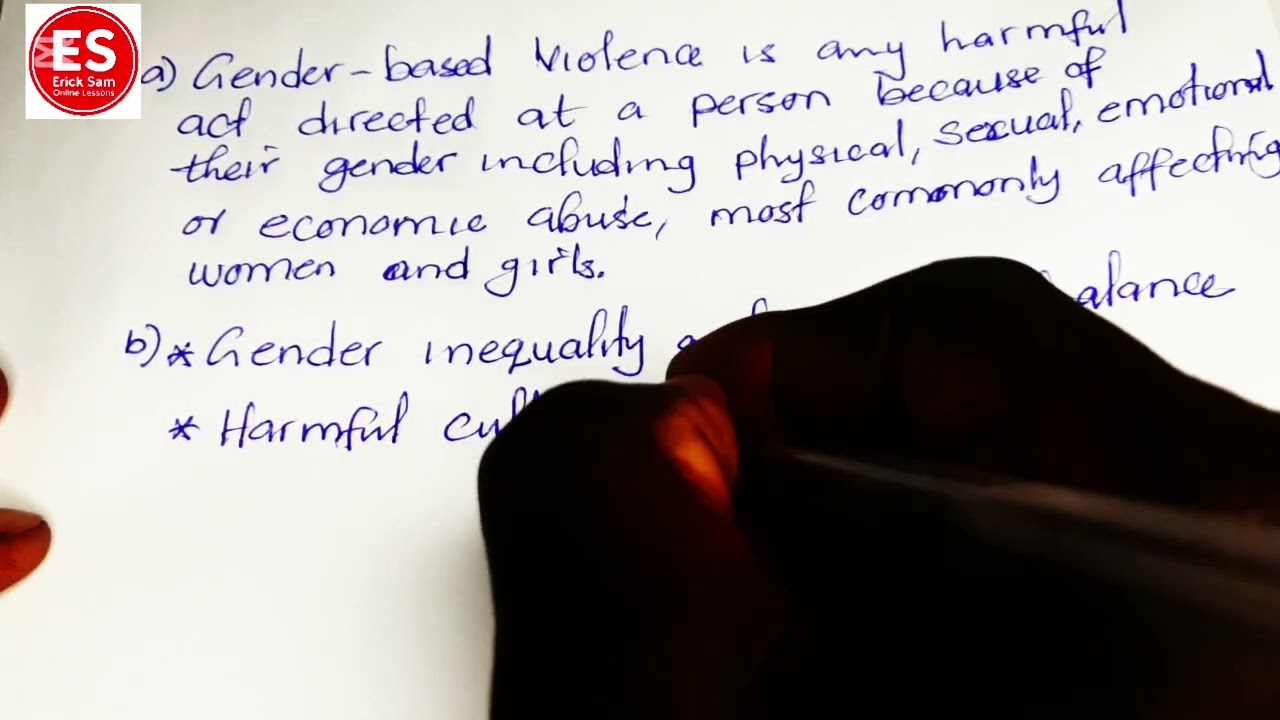 ES
Erick Sam
Online Lessons
a) Gender-based Violence is any harmful
act directed at a person because of
their gender including physical, sexual, emotional
or economic abuse, most commonly affecting
women and girls.
b) * Gender inequality
* Harmful